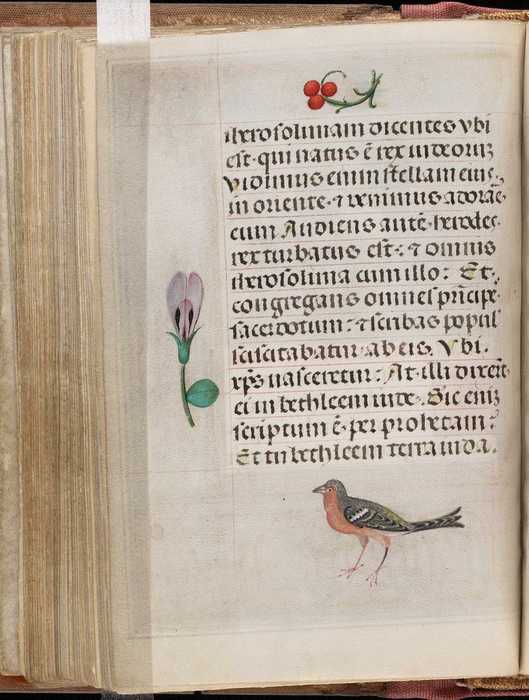 iherosolimam dicentes vbi
est qui natus ē rex iudeorum
Vidimus enim stellam eius
in oriente ⁊ venimus adorare
eum Audiens autē herodes
rex turbatus est: ⁊ omnis
iherosolima cum illo: Et
congregans omnes prīcipe
sacerdotum: ⁊ scribas populi
sciscitabatur ab eis. Vbi
xp̄s nasceretur: At illi dixerūt
ei in bethleem iude. Sic enim
scriptum ē per prophetam:
Et tu bethleem terra iuda.